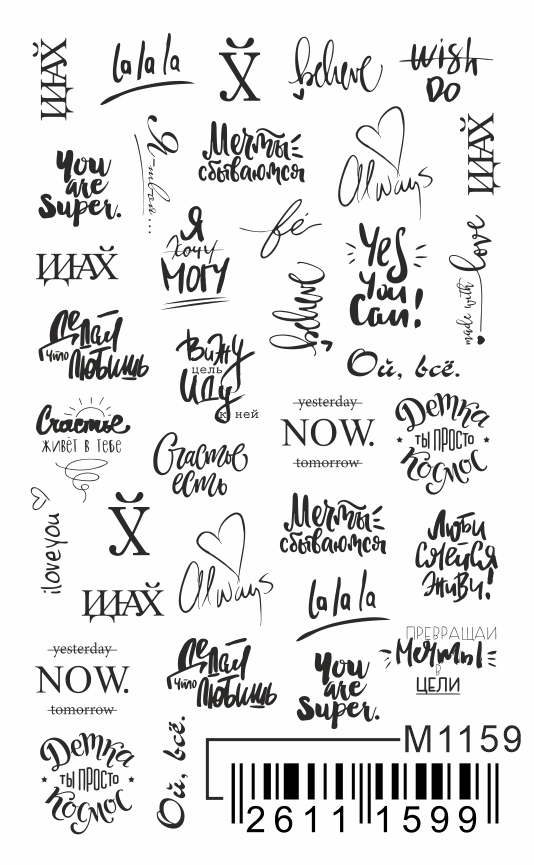 ЩАХ̆
la la la
Х̆
believe
wish
DO
You
are
Super.
Я-твоя...
Мечты
сбываются
Always
ЩАХ̆
ЩАХ̆
Я
хочу
МОГУ
fé
believe
Yes
You
Can!
made with love
Делай
Что
Любишь
Вижу
цель
Иду
к ней
Ой, всё.
Счастье
ЖИВЁТ В ТЕБЕ
Счастье
есть
yesterday
NOW.
tomorrow
Детка
ТЫ ПРОСТО
КОСМОС
i love you
Х̆
Always
Мечты
сбываются
Люби
Смейся
Живи!
ЩАХ̆
la la la
yesterday
NOW.
tomorrow
Делай
Что
Любишь
You
are
Super.
ПРЕВРАЩАЙ
Мечты
В
ЦЕЛИ
Детка
ТЫ ПРОСТО
КОСМОС
Ой, всё.
M1159
2611 1599